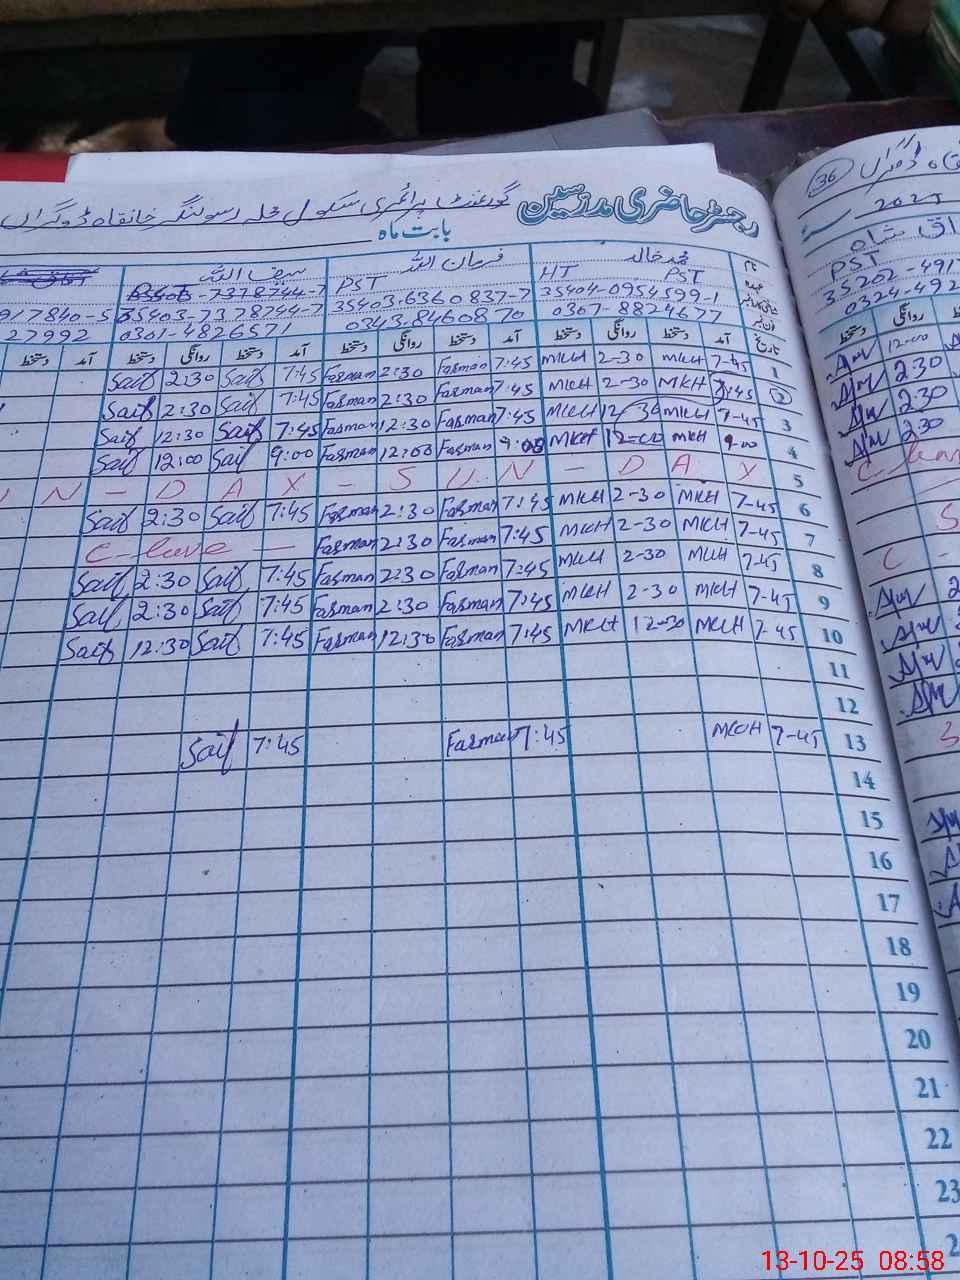 رجسٹر حاضری مدرسین گورنمنٹ پرائمری سکول محلہ رسولنگر خانقاہ ڈوگراں
بابت ماہ
نام محمد خالد فرمان اللہ سیف اللہ
عہدہ PST HT PST
35404-0954599-1 35403-6360837-7 35403-7378744-7 917840-5
فون نمبر 0307-8824677 0343-8460870 0301-4826571 27992
تاریخ آمد دستخط روانگی دستخط آمد دستخط روانگی دستخط آمد دستخط روانگی دستخط آمد دستخط
1 7-45 MKH 2-30 MKH 7:45 Farman 2:30 Farman 7:45 Saif 2:30 Saif
2 7-45 MKH 2-30 MKH 7:45 Farman 2:30 Farman 7:45 Saif 2:30 Saif
3 7-45 MKH 12-30 MKH 7:45 Farman 12:30 Farman 7:45 Saif 12:30 Saif
4 9-00 MKH 12-00 MKH 9:00 Farman 12:00 Farman 9:00 Saif 12:00 Saif
5 N - D A Y - S U N - D A Y
6 7-45 MKH 2-30 MKH 7:45 Farman 2:30 Farman 7:45 Saif 2:30 Saif
7 7-45 MKH 2-30 MKH 7:45 Farman 2:30 Farman C-leave
8 7-45 MKH 2-30 MKH 7:45 Farman 2:30 Farman 7:45 Saif 2:30 Saif
9 7-45 MKH 2-30 MKH 7:45 Farman 2:30 Farman 7:45 Saif 2:30 Saif
10 7-45 MKH 12-30 MKH 7:45 Farman 12:30 Farman 7:45 Saif 12:30 Saif
11
12
13 7-45 MKH 7:45 Farman 7:45 Saif
14
15
16
17
18
19
20
21
22
23
2
36
2025
PST
35202-491
0324-492
روانگی دستخط
12-00
2:30
2:30
2:30
13-10-25 08:58